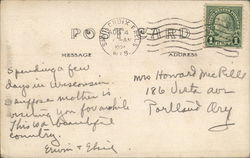 POST CARD
MESSAGE
ADDRESS
Spending a few
days in Wisconsin
suppose mother is
visiting you for awhile
This is a beautiful
country.
Erwin + Elsie
Mrs Howard
186 Vista ave
Portland Org